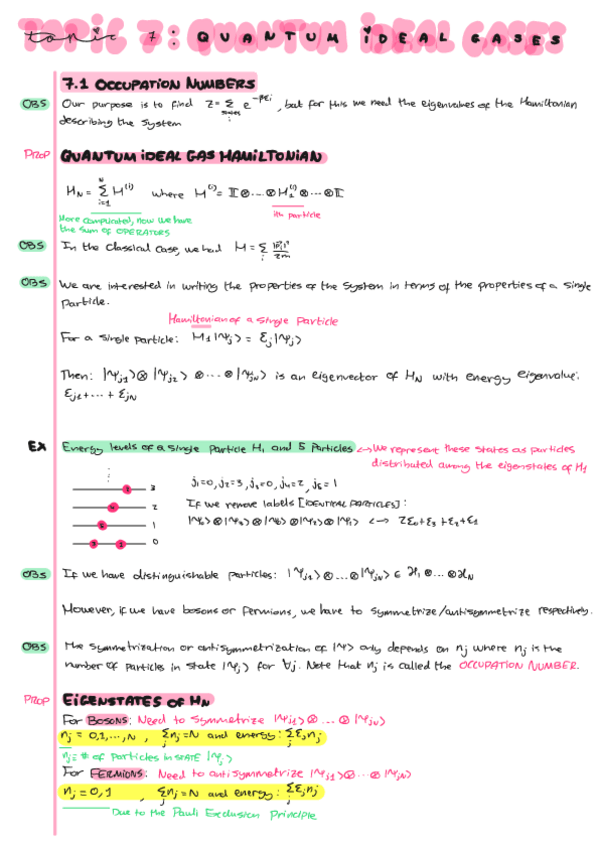 Topic 7: QUANTUM IDEAL GASES
7.1 OCCUPATION NUMBERS
OBS Our purpose is to find Z = Σ_states i e^{-βε_i}, but for this we need the eigenvalues of the Hamiltonian
describing the system
PROP QUANTUM IDEAL GAS HAMILTONIAN
H_N = Σ_{i=1}^{N} H^{(i)} where H^{(i)} = 𝕀⊗...⊗H_1^{(i)}⊗...⊗𝕀
More complicated, now we have
the sum of OPERATORS
ith particle
OBS In the classical case, we had H = Σ_i |p_i|²/2m
OBS We are interested in writing the properties of the system in terms of the properties of a single
particle.
Hamiltonian of a single particle
For a single particle: H_1 |ψ_j⟩ = ε_j |ψ_j⟩
Then: |ψ_{j1}⟩⊗|ψ_{j2}⟩⊗...⊗|ψ_{jN}⟩ is an eigenvector of H_N with energy eigenvalue:
ε_{j1}+...+ε_{jN}
EX Energy levels of a single particle H_1 and 5 particles ↔ We represent these states as particles
distributed among the eigenstates of H_1
3
2
1
0
j_1=0, j_2=3, j_3=0, j_4=2, j_5=1
If we remove labels [IDENTICAL PARTICLES]:
↔ 2ε_0+ε_3+ε_2+ε_1
OBS If we have distinguishable particles: |ψ_{j1}⟩⊗...⊗|ψ_{jN}⟩ ∈ ℋ_1⊗...⊗ℋ_N
However, if we have bosons or fermions, we have to symmetrize/antisymmetrize respectively.
OBS The symmetrization or antisymmetrization of |ψ⟩ only depends on n_j where n_j is the
number of particles in state |ψ_j⟩ for ∀j. Note that n_j is called the OCCUPATION NUMBER.
PROP EIGENSTATES OF H_N
For BOSONS: Need to symmetrize |ψ_{j1}⟩⊗...⊗|ψ_{jN}⟩
n_j = 0,1,...,N , Σ_j n_j = N and energy: Σ_j ε_j n_j
n_j = # of particles in STATE |ψ_j⟩
For FERMIONS: Need to antisymmetrize |ψ_{j1}⟩⊗...⊗|ψ_{jN}⟩
n_j = 0,1 , Σ_j n_j = N and energy: Σ_j ε_j n_j
Due to the Pauli Exclusion Principle